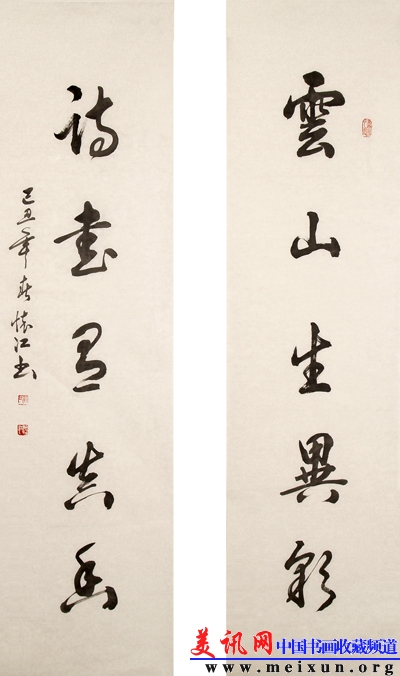 雲山生異彩
詩書有真香
己丑年春懷江書
美讯网 中国书画收藏频道
www.meixun.org